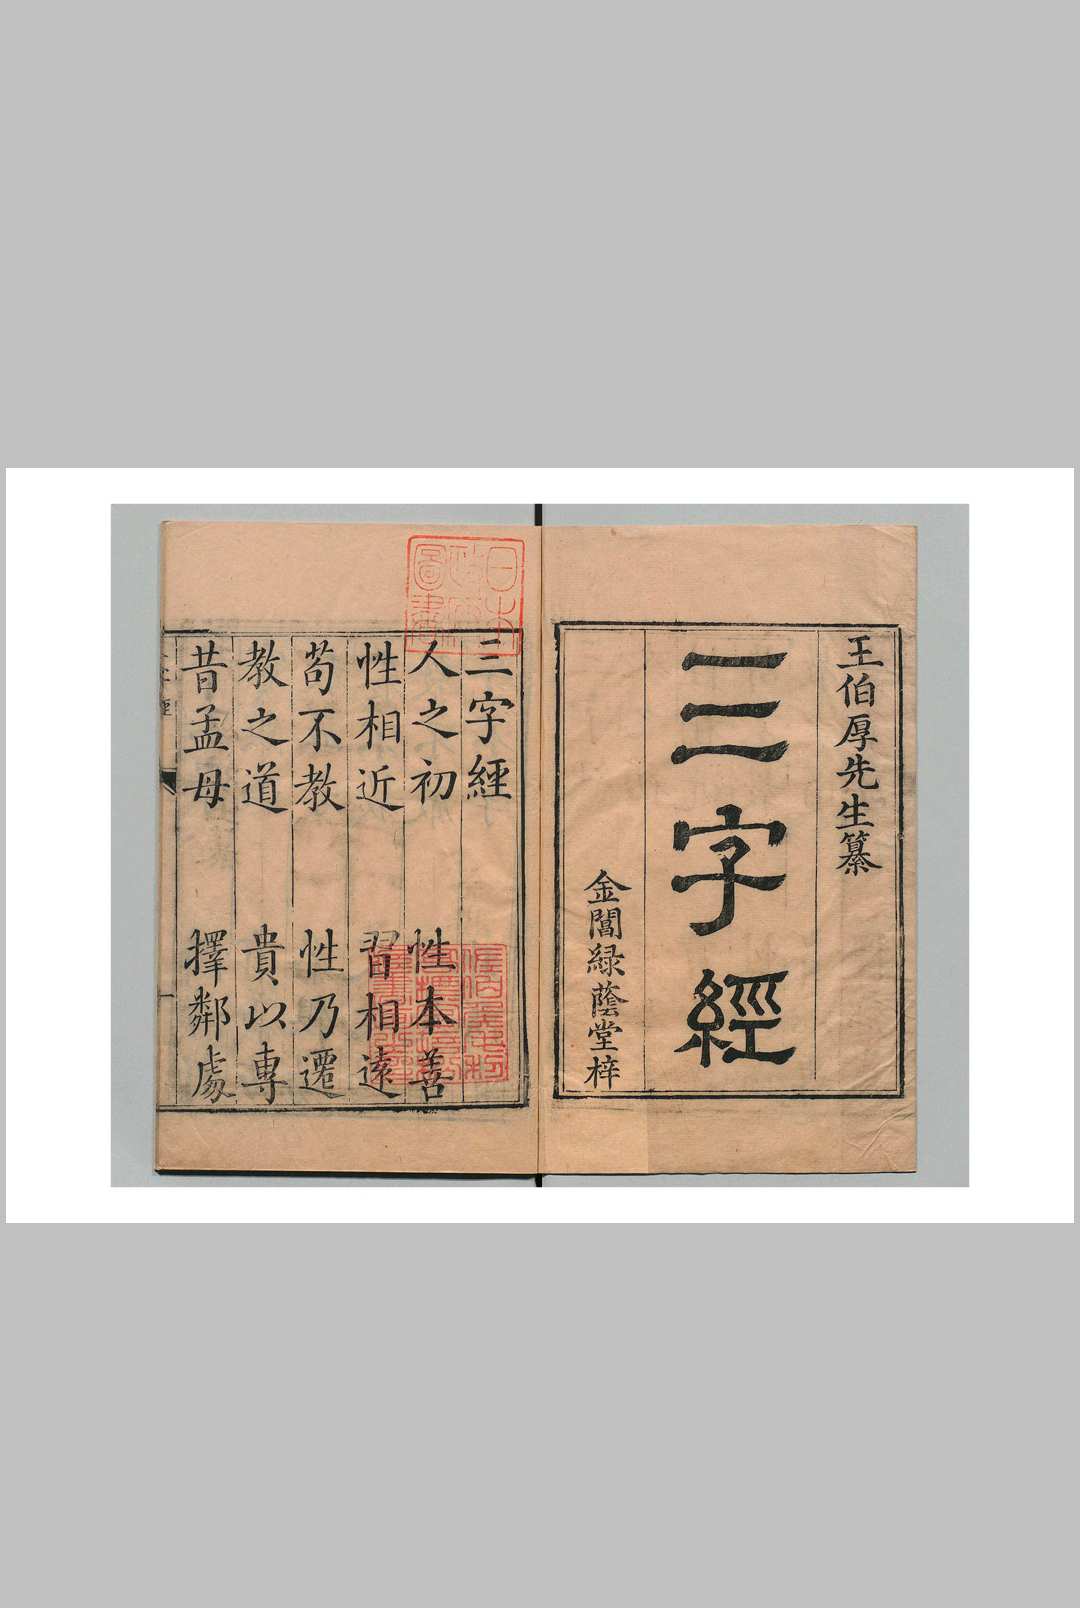 王伯厚先生纂
三字經
金閶緑蔭堂梓
三字經
人之初　性本善
性相近　習相遠
苟不教　性乃遷
教之道　貴以專
昔孟母　擇鄰處
日本
政府
圖書